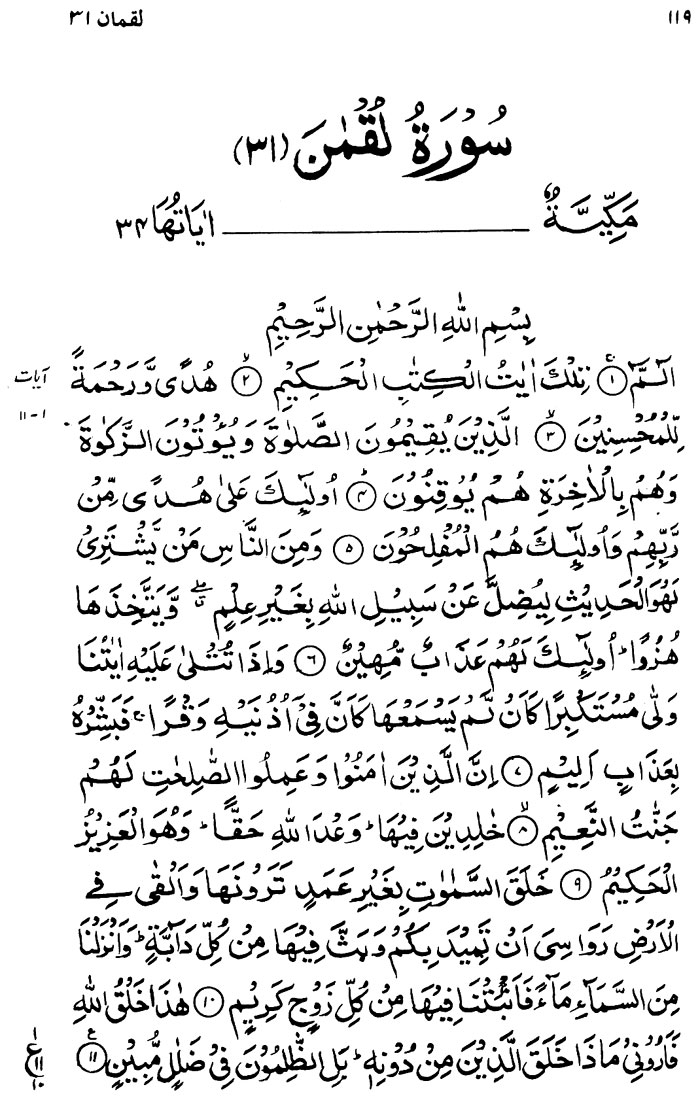 ۱۱۹ لقمان ۳۱
سُوْرَةُ لُقْمٰنَ (۳۱)
مَكِّيَّةٌ ــــــ اٰيَاتُهَا ۳۴
بِسْمِ اللهِ الرَّحْمٰنِ الرَّحِيْمِ
الٓـمّٓ ۚ ﴿۱﴾ تِلْكَ اٰيٰتُ الْكِتٰبِ الْحَكِيْمِ ۙ ﴿۲﴾ هُدًى وَّرَحْمَةً آیات
لِّلْمُحْسِنِيْنَ ۙ ﴿۳﴾ الَّذِيْنَ يُقِيْمُوْنَ الصَّلٰوةَ وَيُؤْتُوْنَ الزَّكٰوةَ ۱-۱۱
وَهُمْ بِالْاٰخِرَةِ هُمْ يُوْقِنُوْنَ ؕ ﴿۴﴾ اُولٰٓئِكَ عَلٰى هُدًى مِّنْ
رَّبِّهِمْ وَاُولٰٓئِكَ هُمُ الْمُفْلِحُوْنَ ﴿۵﴾ وَمِنَ النَّاسِ مَنْ يَّشْتَرِىْ
لَهْوَ الْحَدِيْثِ لِيُضِلَّ عَنْ سَبِيْلِ اللهِ بِغَيْرِ عِلْمٍ ۖ وَّيَتَّخِذَهَا
هُزُوًا ؕ اُولٰٓئِكَ لَهُمْ عَذَابٌ مُّهِيْنٌ ﴿۶﴾ وَاِذَا تُتْلٰى عَلَيْهِ اٰيٰتُنَا
وَلّٰى مُسْتَكْبِرًا كَاَنْ لَّمْ يَسْمَعْهَا كَاَنَّ فِىْٓ اُذُنَيْهِ وَقْرًا ۚ فَبَشِّرْهُ
بِعَذَابٍ اَلِيْمٍ ﴿۷﴾ اِنَّ الَّذِيْنَ اٰمَنُوْا وَعَمِلُوا الصّٰلِحٰتِ لَهُمْ
جَنّٰتُ النَّعِيْمِ ۙ ﴿۸﴾ خٰلِدِيْنَ فِيْهَا ؕ وَعْدَ اللهِ حَقًّا ؕ وَهُوَ الْعَزِيْزُ
الْحَكِيْمُ ﴿۹﴾ خَلَقَ السَّمٰوٰتِ بِغَيْرِ عَمَدٍ تَرَوْنَهَا وَاَلْقٰى فِى
الْاَرْضِ رَوَاسِىَ اَنْ تَمِيْدَ بِكُمْ وَبَثَّ فِيْهَا مِنْ كُلِّ دَآبَّةٍ ؕ وَاَنْزَلْنَا
مِنَ السَّمَآءِ مَآءً فَاَنْۢبَتْنَا فِيْهَا مِنْ كُلِّ زَوْجٍ كَرِيْمٍ ﴿۱۰﴾ هٰذَا خَلْقُ اللهِ
فَاَرُوْنِىْ مَاذَا خَلَقَ الَّذِيْنَ مِنْ دُوْنِهٖ ؕ بَلِ الظّٰلِمُوْنَ فِىْ ضَلٰلٍ مُّبِيْنٍ ۧ ﴿۱۱﴾ ع ۱۱ ۱۰